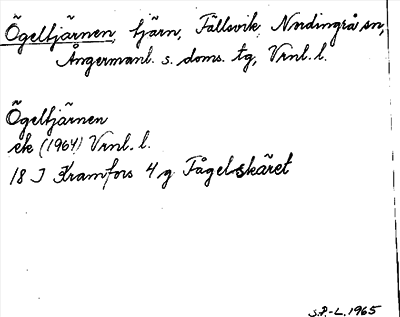 Ögeltjärnen, tjärn, Fällsvik, Nordingrå sn,
Ångermanl. s. doms. tg, Vrnl. l.
Ögeltjärnen
ek (1964) Vrnl. l.
18 J Kramfors 4 g Fågelskäret
S.P.-L. 1965